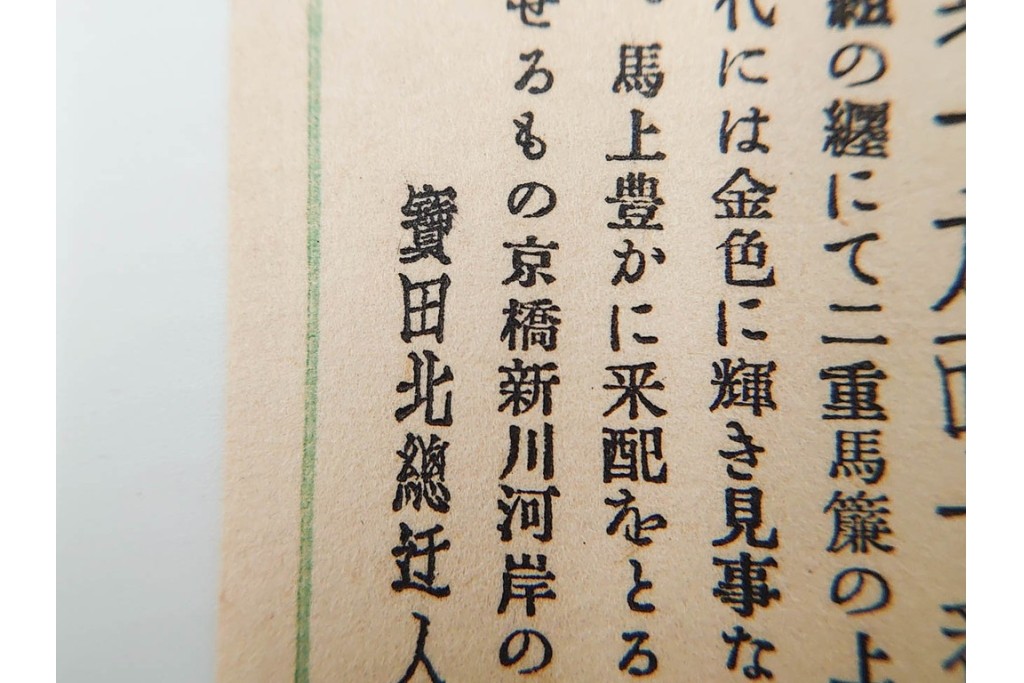 組の纏にて二重馬簾の上
代には金色に輝き見事な
。馬上豊かに釆配をとる
せるもの京橋新川河岸の
寶田北總迂人